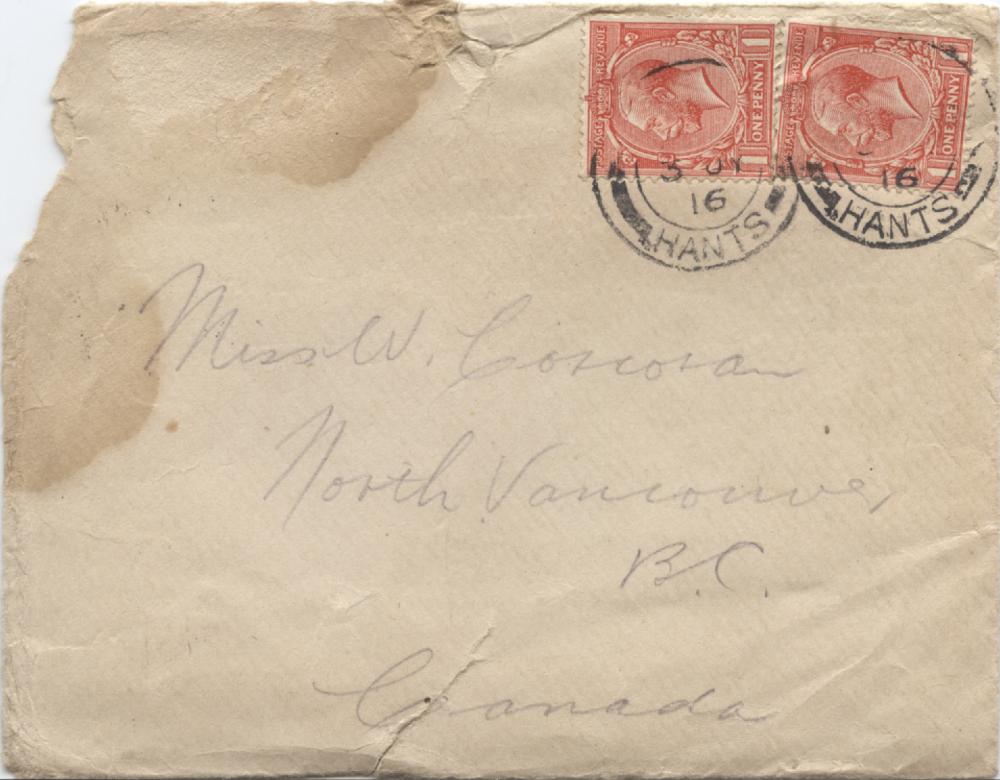 POSTAGE REVENUE
1 ONE PENNY 1
POSTAGE REVENUE
1 ONE PENNY 1
3 JY
16
HANTS
16
HANTS
Miss W. Corcoran
North Vancouver
B.C.
Canada